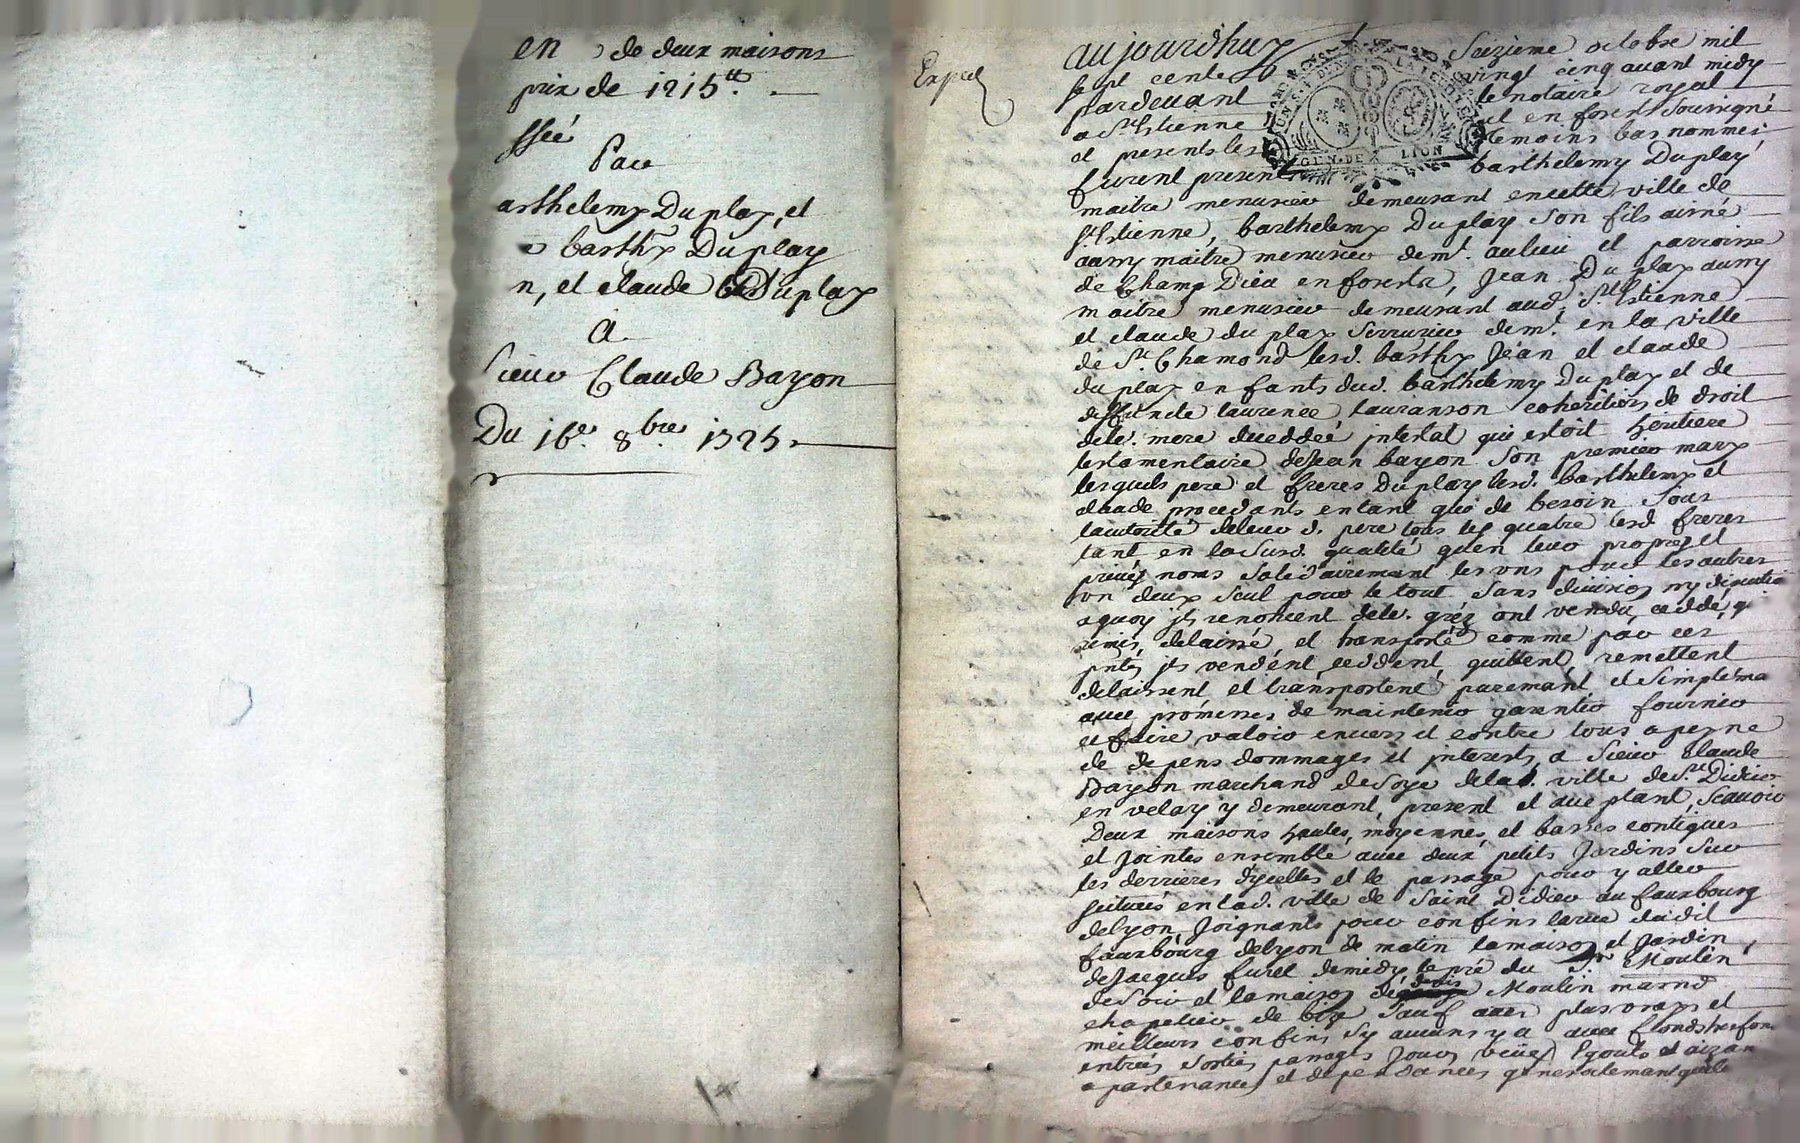 en de deux maisons
prix de 1215.tt
ssée
Par
arthelemy Duplay, et
barthy Duplay
n, et claude Duplay
A
sieur Claude Bayon
Du 16e. 8bre 1725.
Exped
aujourdhuy Seizieme octobre mil
sept cents vingt cinq avant midy
pardevant le notaire royal
a St. Etienne et en forest soussigné
et presents les temoins bas nommes
furent present barthelemy Duplay
maitre menusier demeurant en cette ville de
St. Etienne, barthelemy Duplay son fils ainé
aussy maitre menusier demt. au lieu et parroisse
de Champ Dieu en forests, Jean Duplay aussy
maitre menusier demeurant aud. St. Etienne
et claude du play serrurier demt. en la ville
de St. Chamond lesd. barthy Jean et claude
du play enfants dud. barthelemy Duplay et de
deffuncte laurence tauranson coheritiers de droit
delad. mere deceddée intestat qui estoit heritiere
testamentaire de Jean bayon son premier mary
lesquels pere et freres Duplay lesd. barthelemy et
claude procedants en tant que de besoin sous
lautorité de leur d. pere tous les quatre lesd freres
tant en la susd. qualité quen leur propres et
privés noms solidairemant les uns pour les autres
un deux seul pour le tout sans division ny discution
a quoy jls renoncent de le. gréz ont vendu, ceddé, q
remis, delaissé, et transporté comme par ces
pntes jls vendent, ceddent, quittent, remettent
delaissent et transportent puremant et simplema
avec promesses de maintenir garentir fournir
et faire valoir envers et contre tous a peyne
de depens dommages et jnterests, a sieur Claude
Bayon marchand de soye de lad. ville de St. Didier
en velay y demeurant, present et acceptant, scavoir
Deux maisons hautes, moyennes, et basses contigues
et jointes ensemble avec deux petits Jardins sur
les derrieres d'ycelles et le passage pour y aller
scituées en lad. ville de Saint Didier au fauxbourg
de lyon, joignants pour confins la rue dudit
fauxbourg de lyon de matin la maison et Jardin
de Jacques furel de midy le pré du Sr. Moulin
de soir et la maison Moulin marnd
chapelier de bize sauf autres plus vrays et
meilleurs confins sy aucuns y a avec fonds tresfons
entrées sorties passages jours veües Egouts et aizan
apartenances et dependances generalemant quelc